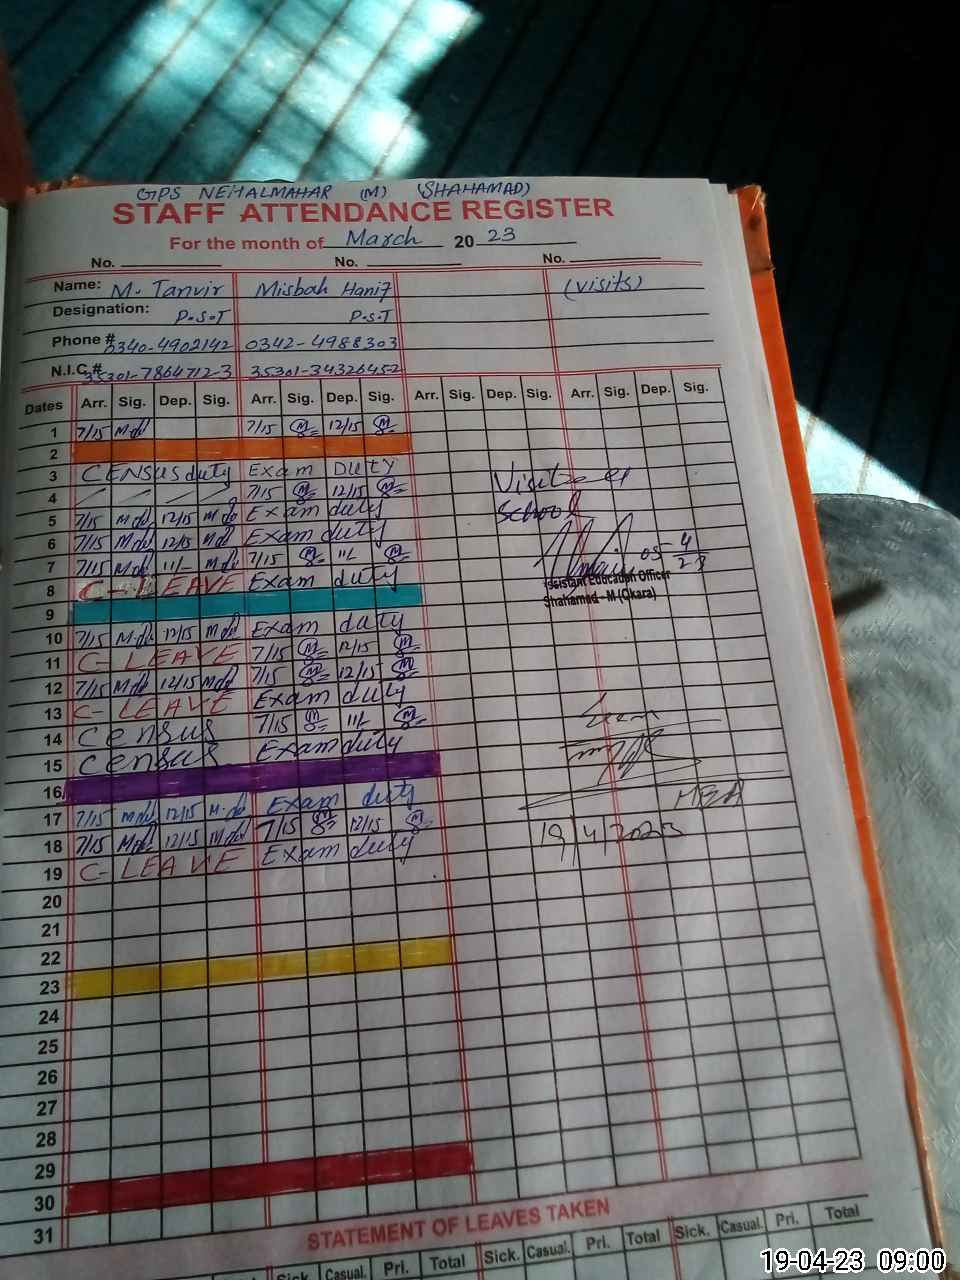 GPS NEHALMAHAR (M) (SHAHAMAD)
STAFF ATTENDANCE REGISTER
For the month of March 20 23
No. No. No.
Name: M. Tanvir Misbah Hanif (visits)
Designation: P.S.T P.S.T
Phone # 0340-4902142 0342-4988303
N.I.C.# 35301-7864712-3 35301-34326452
Dates Arr. Sig. Dep. Sig. Arr. Sig. Dep. Sig. Arr. Sig. Dep. Sig. Arr. Sig. Dep. Sig.
1 7/15 7/15 12/15
2
3 CENSUS duty Exam DUTY
4 7/15 12/15
5 7/15 12/15 Exam duty
6 7/15 12/15 Exam duty
7 7/15 11/- 7/15 11/-
8 C- LEAVE Exam duty
9
10 7/15 12/15 Exam duty
11 C- LEAVE 7/15 12/15
12 7/15 12/15 7/15 12/15
13 C- LEAVE Exam duty
14 Census 7/15 11/-
15 Census Exam duty
16
17 7/15 12/15 Exam duty
18 7/15 12/15 7/15 12/15
19 C- LEAVE Exam duty
20
21
22
23
24
25
26
27
28
29
30
31
Visited
School
05 4/23
Assistant Education Officer
Shahamad - M (Okara)
19/4/2023
STATEMENT OF LEAVES TAKEN
Sick. Casual. Pri. Total Sick. Casual. Pri. Total Sick. Casual. Pri. Total
19-04-23 09:00